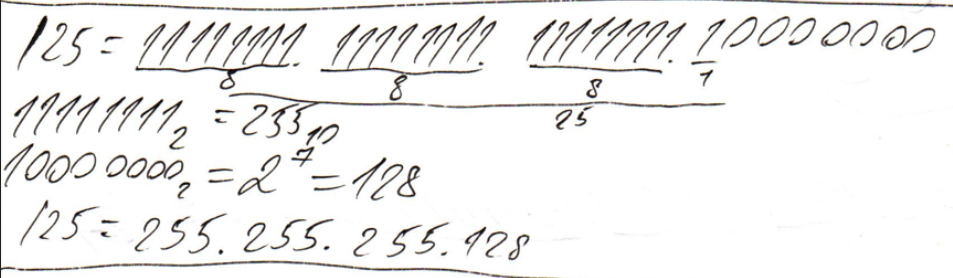 /25 = 11111111. 11111111. 11111111. 10000000
8 8 8 1
25
11111111₂ = 255₁₀
10000000₂ = 2⁷ = 128
/25 = 255. 255. 255. 128